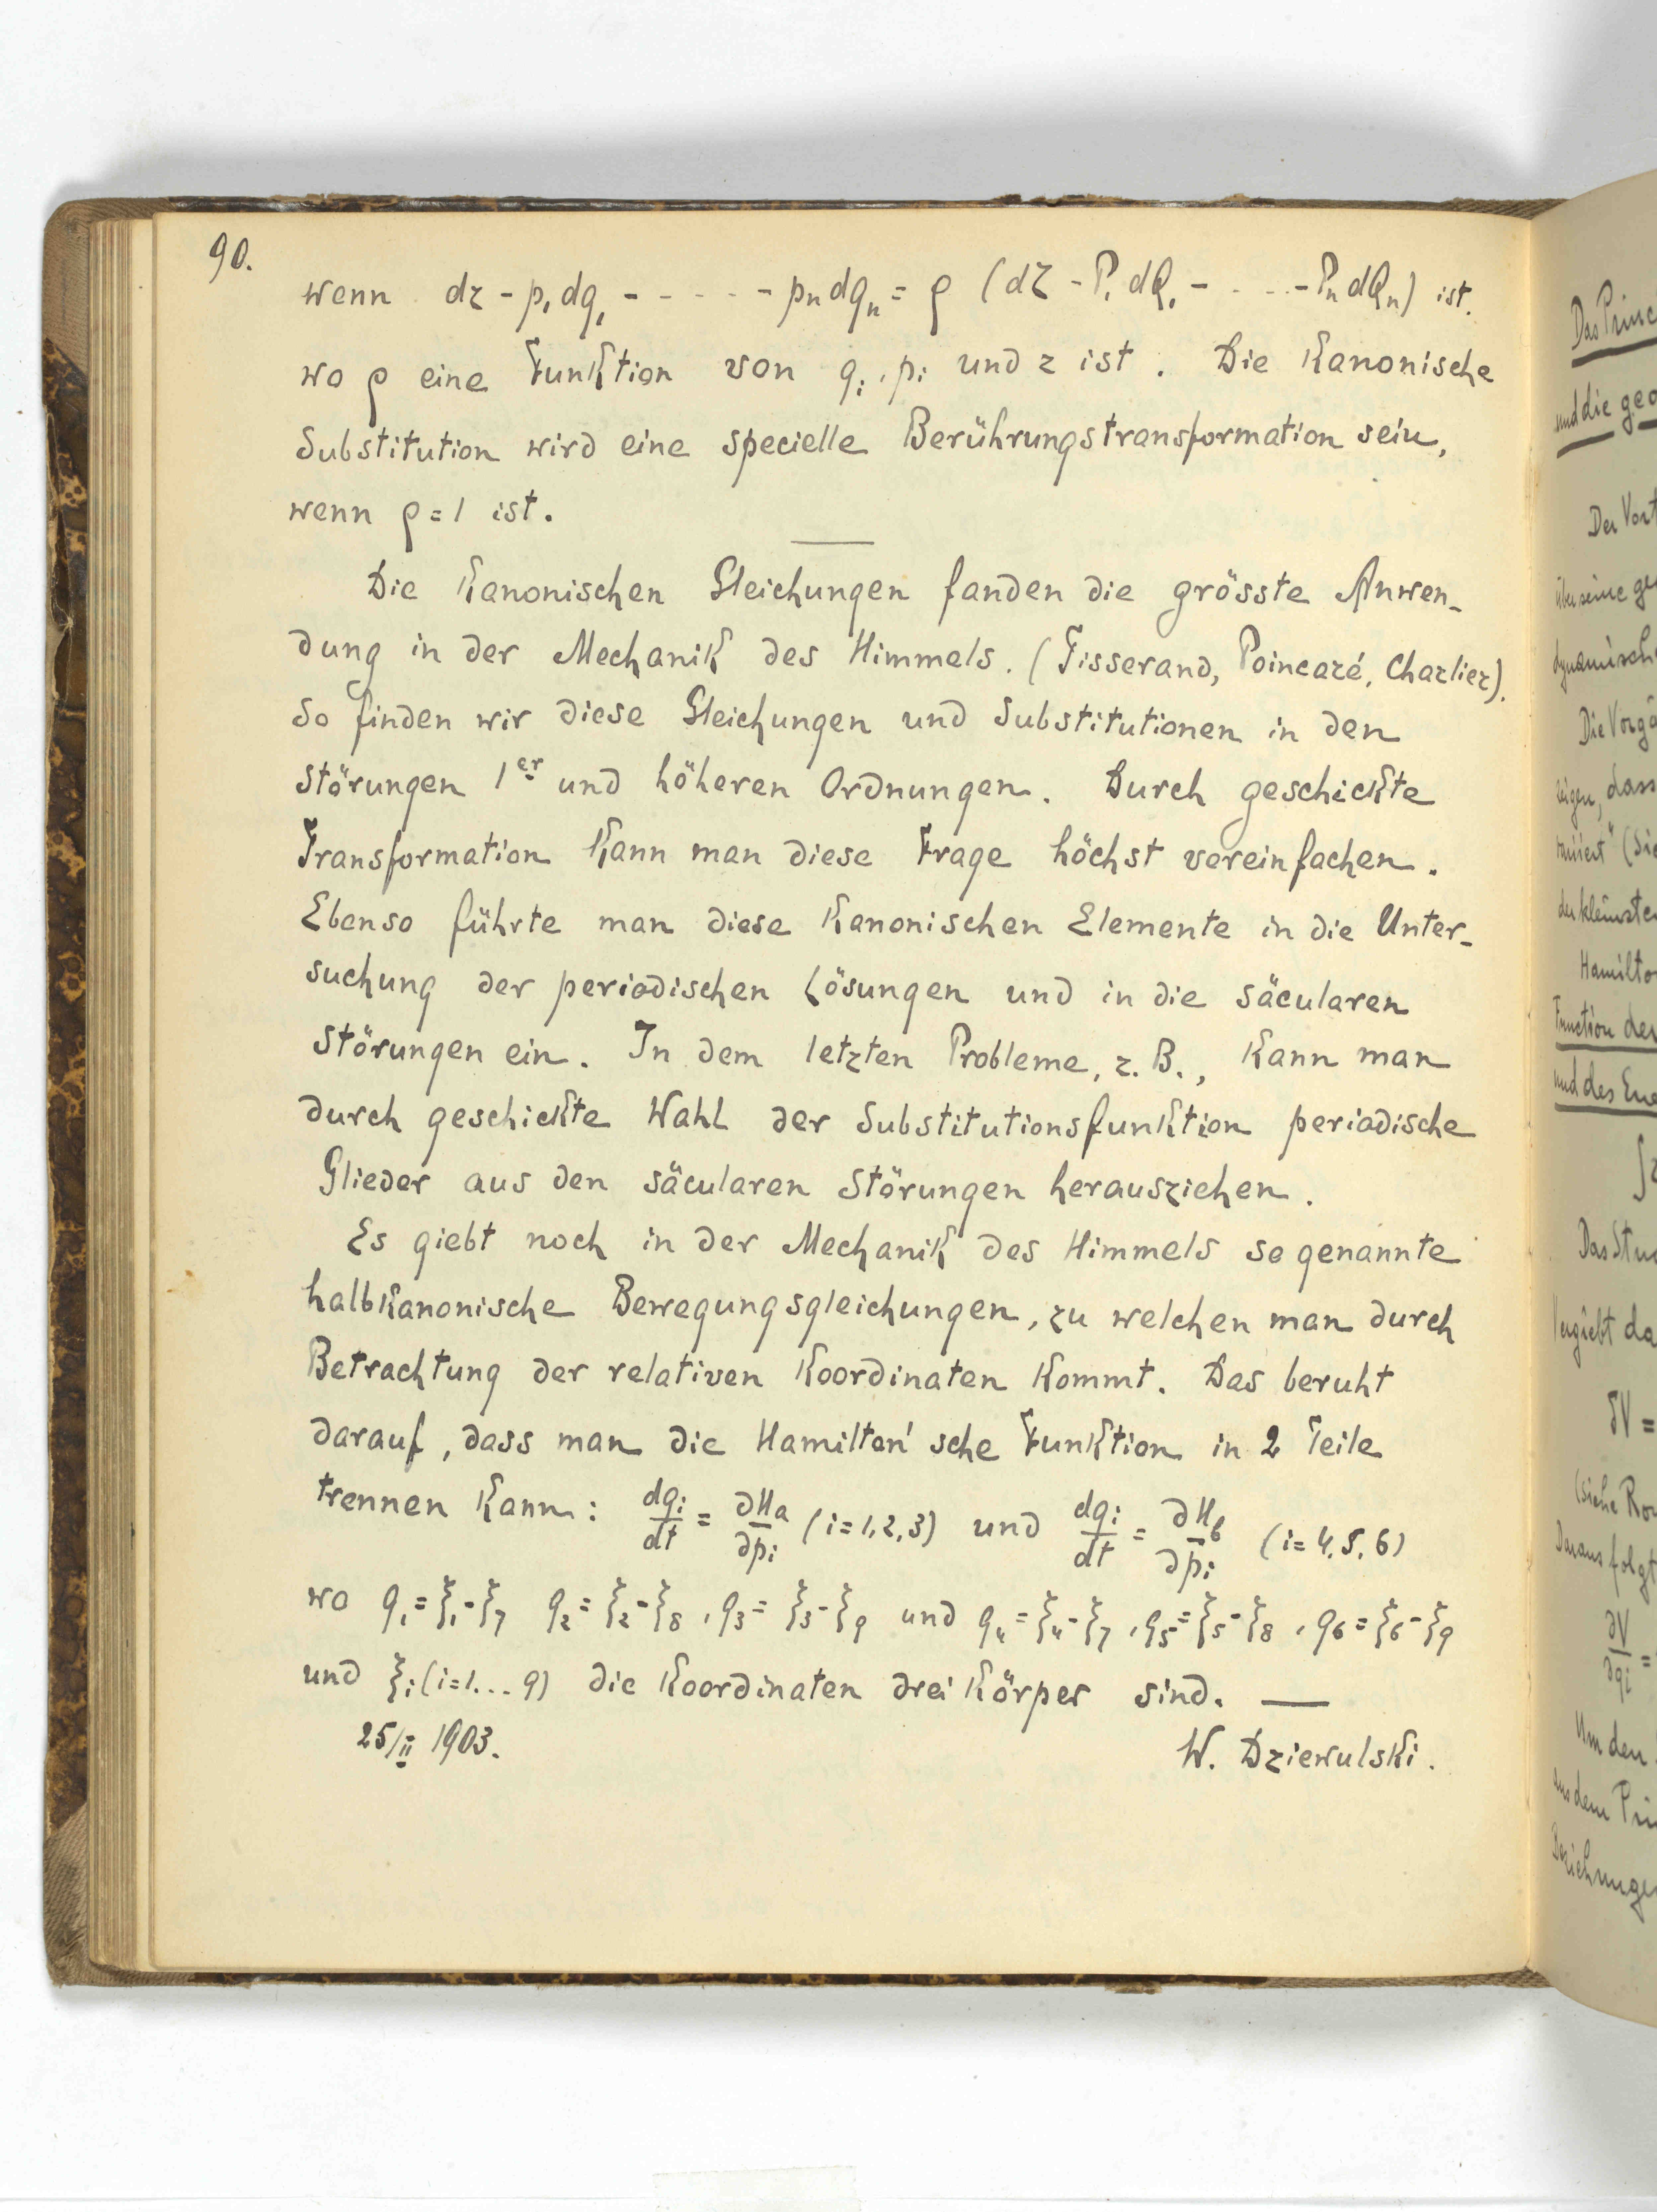 90.
wenn dz - p₁dq₁ - - - - - - pₙdqₙ = ρ (dZ - P₁dQ₁ - . . . - PₙdQₙ) ist.
wo ρ eine Funktion von qᵢ, pᵢ und z ist. Die kanonische
Substitution wird eine specielle Berührungstransformation sein,
wenn ρ = 1 ist.
Die kanonischen Gleichungen fanden die grösste Anwen-
dung in der Mechanik des Himmels. (Tisserand, Poincaré, Charlier).
So finden wir diese Gleichungen und Substitutionen in den
Störungen 1er und höheren Ordnungen. Durch geschickte
Transformation kann man diese Frage höchst vereinfachen.
Ebenso führte man diese kanonischen Elemente in die Unter-
suchung der periodischen Lösungen und in die säcularen
Störungen ein. In dem letzten Probleme, z. B., kann man
durch geschickte Wahl der Substitutionsfunktion periodische
Glieder aus den säcularen Störungen herausziehen.
Es giebt noch in der Mechanik des Himmels so genannte
halbkanonische Bewegungsgleichungen, zu welchen man durch
Betrachtung der relativen Koordinaten kommt. Das beruht
darauf, dass man die Hamilton'sche Funktion in 2 Teile
trennen kann: dqᵢ/dt = ∂Ha/∂pᵢ (i=1,2,3) und dqᵢ/dt = ∂Hb/∂pᵢ (i=4,5,6)
wo q₁=ξ₁-ξ₇ q₂=ξ₂-ξ₈, q₃=ξ₃-ξ₉ und q₄=ξ₄-ξ₇, q₅=ξ₅-ξ₈, q₆=ξ₆-ξ₉
und ξᵢ(i=1...9) die Koordinaten drei Körper sind. —
25/II 1903.
W. Dziewulski.
Das Princ
und die geo
Der Vort
über seine ge
dynamisch
Die Vorgä
zeigen, dass
der kleinste
Hamilto
Function der
und des Ene
Das Stu
da
δV =
(siehe Ro
Daraus folgt
∂V/∂qᵢ =
Um den
aus dem Pri
Beziehunge